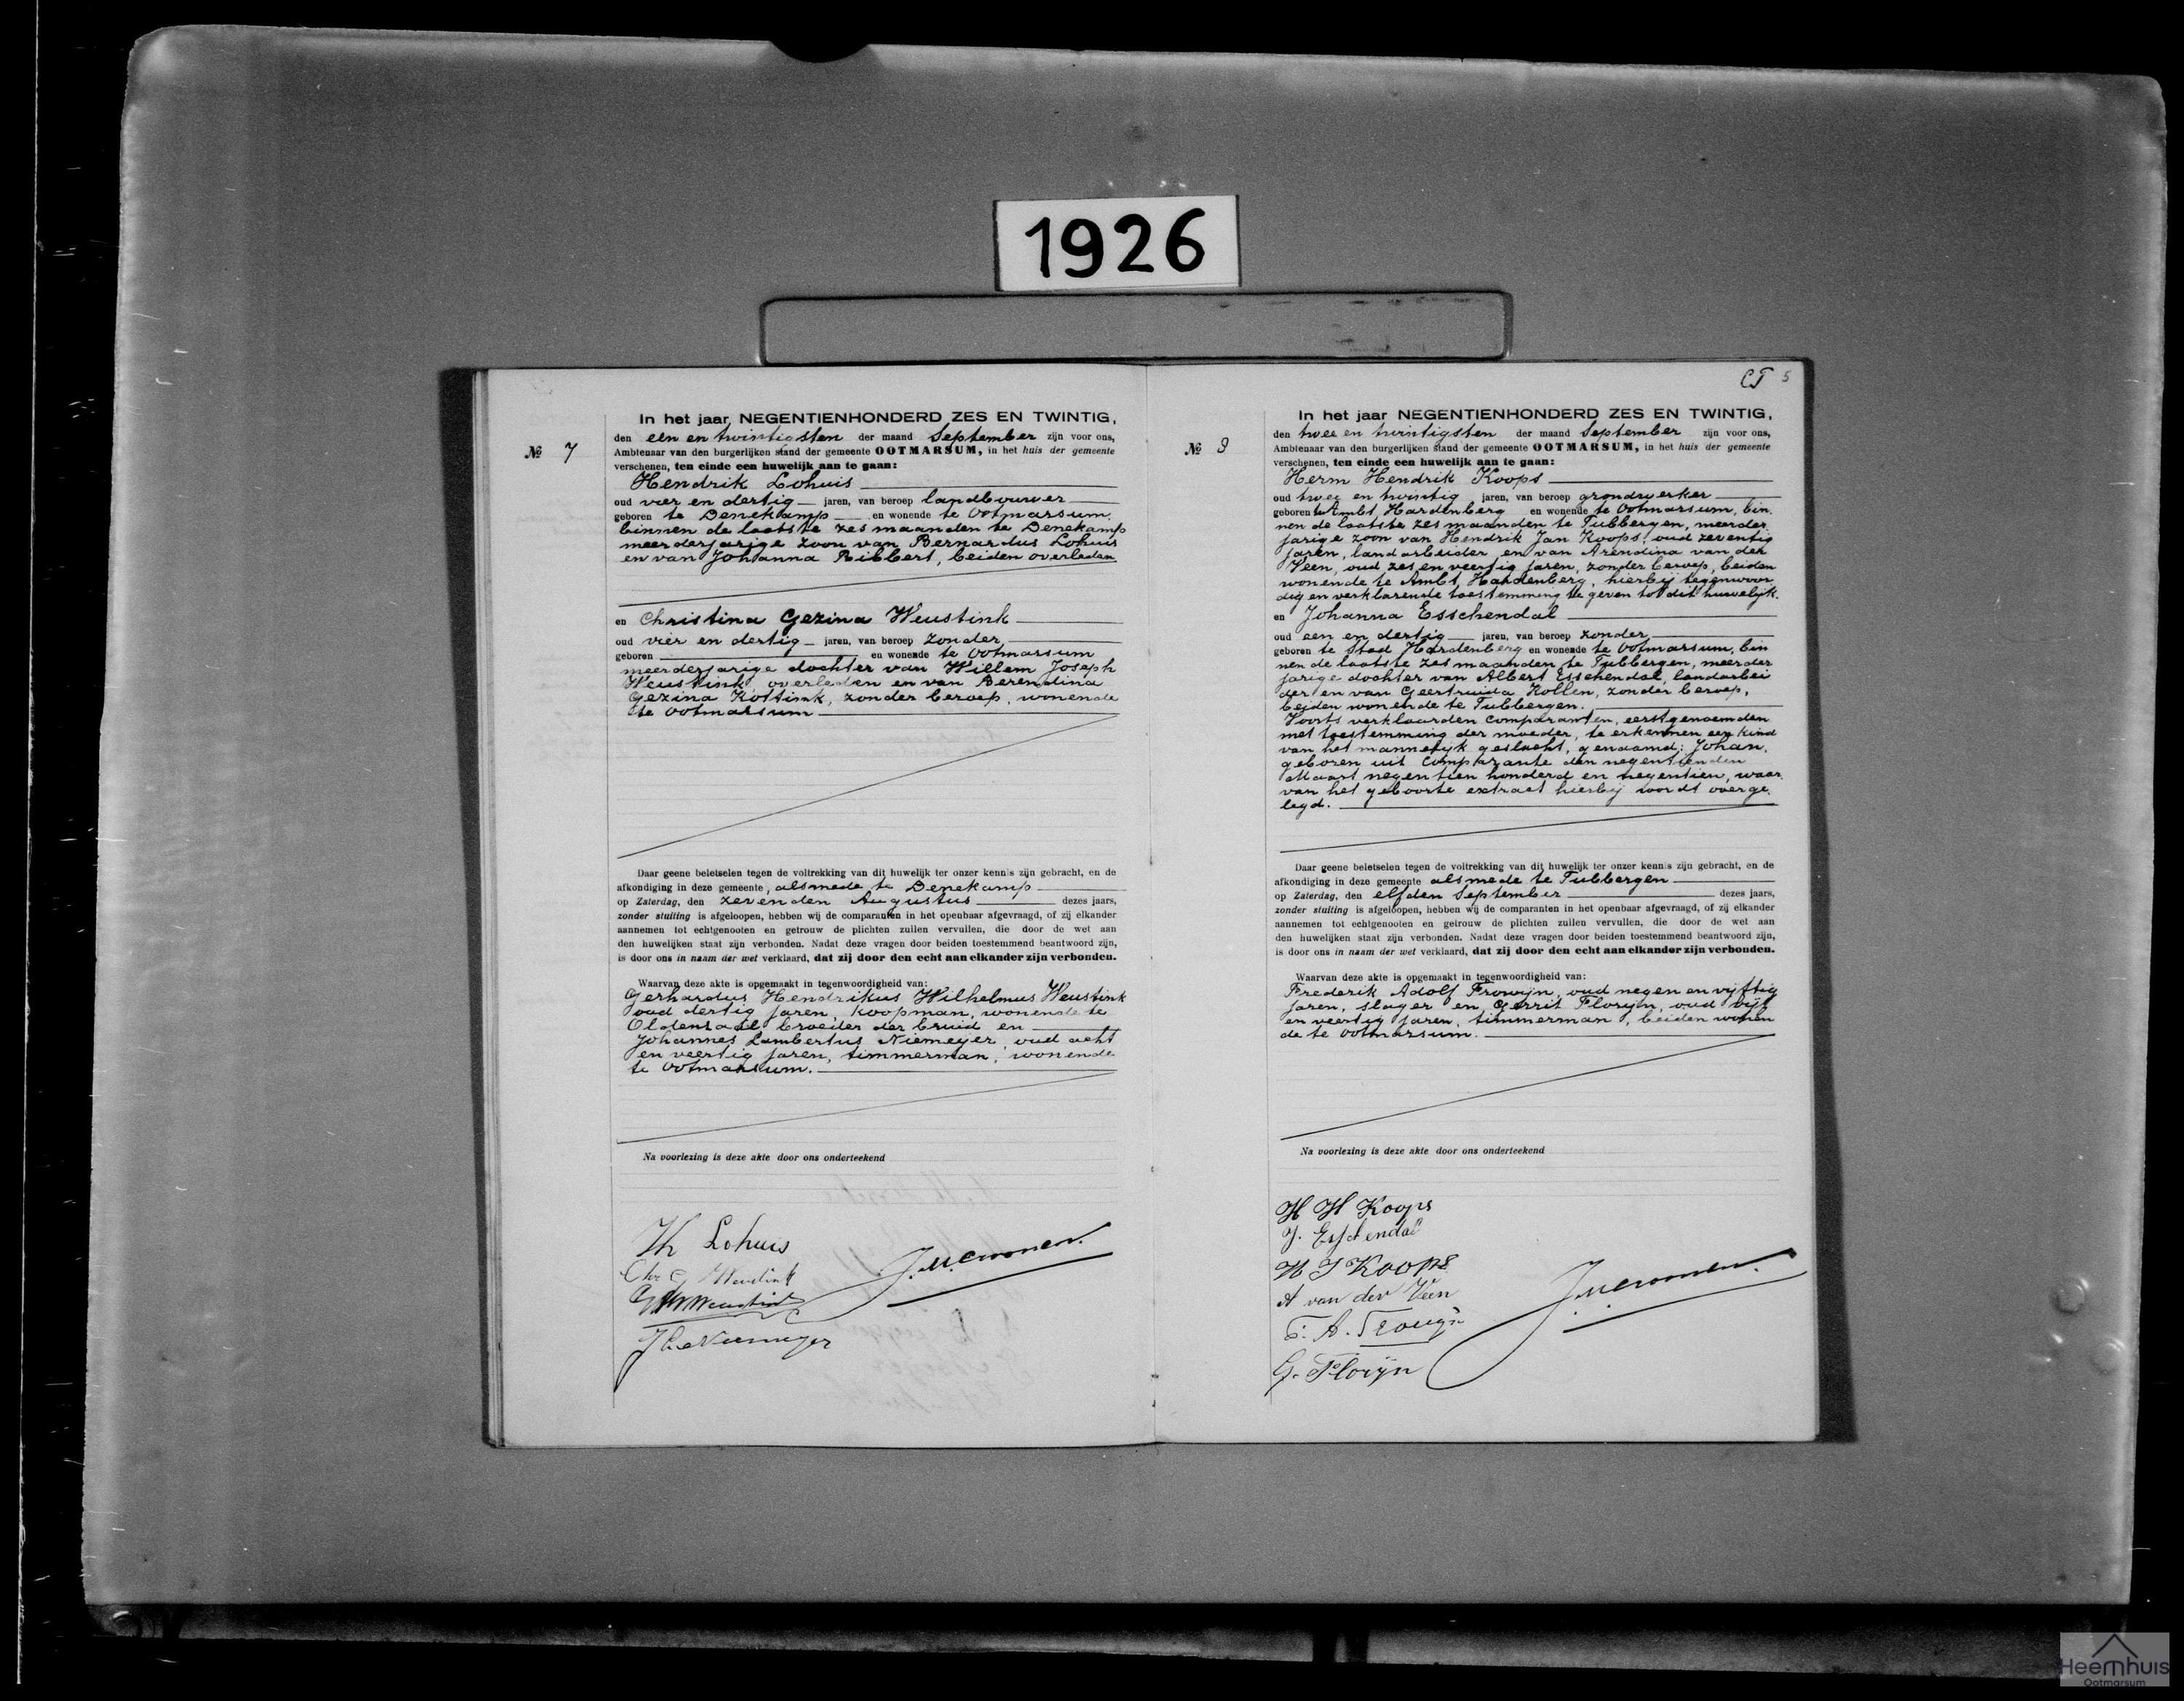 1926
In het jaar NEGENTIENHONDERD ZES EN TWINTIG,
den een en twintigsten der maand September zijn voor ons,
№ 7
Ambtenaar van den burgerlijken stand der gemeente OOTMARSUM, in het huis der gemeente
verschenen, ten einde een huwelijk aan te gaan:
Hendrik Lohuis
oud vier en dertig jaren, van beroep landbouwer
geboren te Denekamp en wonende te Ootmarsum,
binnen de laatste zes maanden te Denekamp
meerderjarige zoon van Bernardus Lohuis
en van Johanna Ribbert, beiden overleden
en Christina Gezina Weustink
oud vier en dertig jaren, van beroep zonder,
geboren en wonende te Ootmarsum
meerderjarige dochter van Willem Joseph
Weustink overleden en van Berendina
Gezina Kottink, zonder beroep, wonende
te Ootmarsum
Daar geene beletselen tegen de voltrekking van dit huwelijk ter onzer kennis zijn gebracht, en de
afkondiging in deze gemeente, alsmede te Denekamp
op Zaterdag, den zevenden Augustus dezes jaars,
zonder stuiting is afgeloopen, hebben wij de comparanten in het openbaar afgevraagd, of zij elkander
aannemen tot echtgenooten en getrouw de plichten zullen vervullen, die door de wet aan
den huwelijken staat zijn verbonden. Nadat deze vragen door beiden toestemmend beantwoord zijn,
is door ons in naam der wet verklaard, dat zij door den echt aan elkander zijn verbonden.
Waarvan deze akte is opgemaakt in tegenwoordigheid van:
Gerhardus Hendrikus Wilhelmus Weustink
oud dertig jaren, koopman, wonende te
Oldenzaal broeder der bruid en
Johannes Lambertus Niemeyer, oud acht
en veertig jaren, timmerman, wonende
te Ootmarsum.
Na voorlezing is deze akte door ons onderteekend
Lohuis
Chr G Weustink
Weustink
Niemeyer
CT 5
In het jaar NEGENTIENHONDERD ZES EN TWINTIG,
den twee en twintigsten der maand September zijn voor ons,
№
Ambtenaar van den burgerlijken stand der gemeente OOTMARSUM, in het huis der gemeente
verschenen, ten einde een huwelijk aan te gaan:
Herm Hendrik Koops
oud twee en twintig jaren, van beroep grondwerker
geboren te Ambt Hardenberg en wonende te Ootmarsum, bin
nen de laatste zes maanden te Tubbergen, meerder
jarige zoon van Hendrik Jan Koops, oud zeventig
jaren, landarbeider en van Arendina van der
Veen, oud zes en veertig jaren, zonder beroep, beiden
wonende te Ambt Hardenberg, hierbij tegenwoor
dig en verklarende toestemming te geven tot dit huwelijk.
en Johanna Esschendal
oud een en dertig jaren, van beroep zonder,
geboren te Stad Hardenberg en wonende te Ootmarsum, bin
nen de laatste zes maanden te Tubbergen, meerder
jarige dochter van Albert Esschendal, landarbei
der en van Geertruida Kollen, zonder beroep,
beiden wonende te Tubbergen.
Voorts verklaarden comparanten, eerstgenoemden
met toestemming der moeder, te erkennen een kind
van het mannelijk geslacht, genaamd: Johan,
geboren uit comparante den negentienden
Maart negentien honderd en negentien, waar
van het geboorte extract hierbij wordt overge
legd.
Daar geene beletselen tegen de voltrekking van dit huwelijk ter onzer kennis zijn gebracht, en de
afkondiging in deze gemeente alsmede te Tubbergen
op Zaterdag, den elfden September dezes jaars,
zonder stuiting is afgeloopen, hebben wij de comparanten in het openbaar afgevraagd, of zij elkander
aannemen tot echtgenooten en getrouw de plichten zullen vervullen, die door de wet aan
den huwelijken staat zijn verbonden. Nadat deze vragen door beiden toestemmend beantwoord zijn,
is door ons in naam der wet verklaard, dat zij door den echt aan elkander zijn verbonden.
Waarvan deze akte is opgemaakt in tegenwoordigheid van:
Frederik Adolf Frowijn, oud negen en vijftig
jaren, slager en Gerrit Florijn, oud vijf
en veertig jaren, timmerman, beiden wonen
de te Ootmarsum.
Na voorlezing is deze akte door ons onderteekend
H H Koops
J. Esschendal
H J Koops
A van der Veen
F. A. Frowijn
G. Florijn
Heemhuis
Ootmarsum